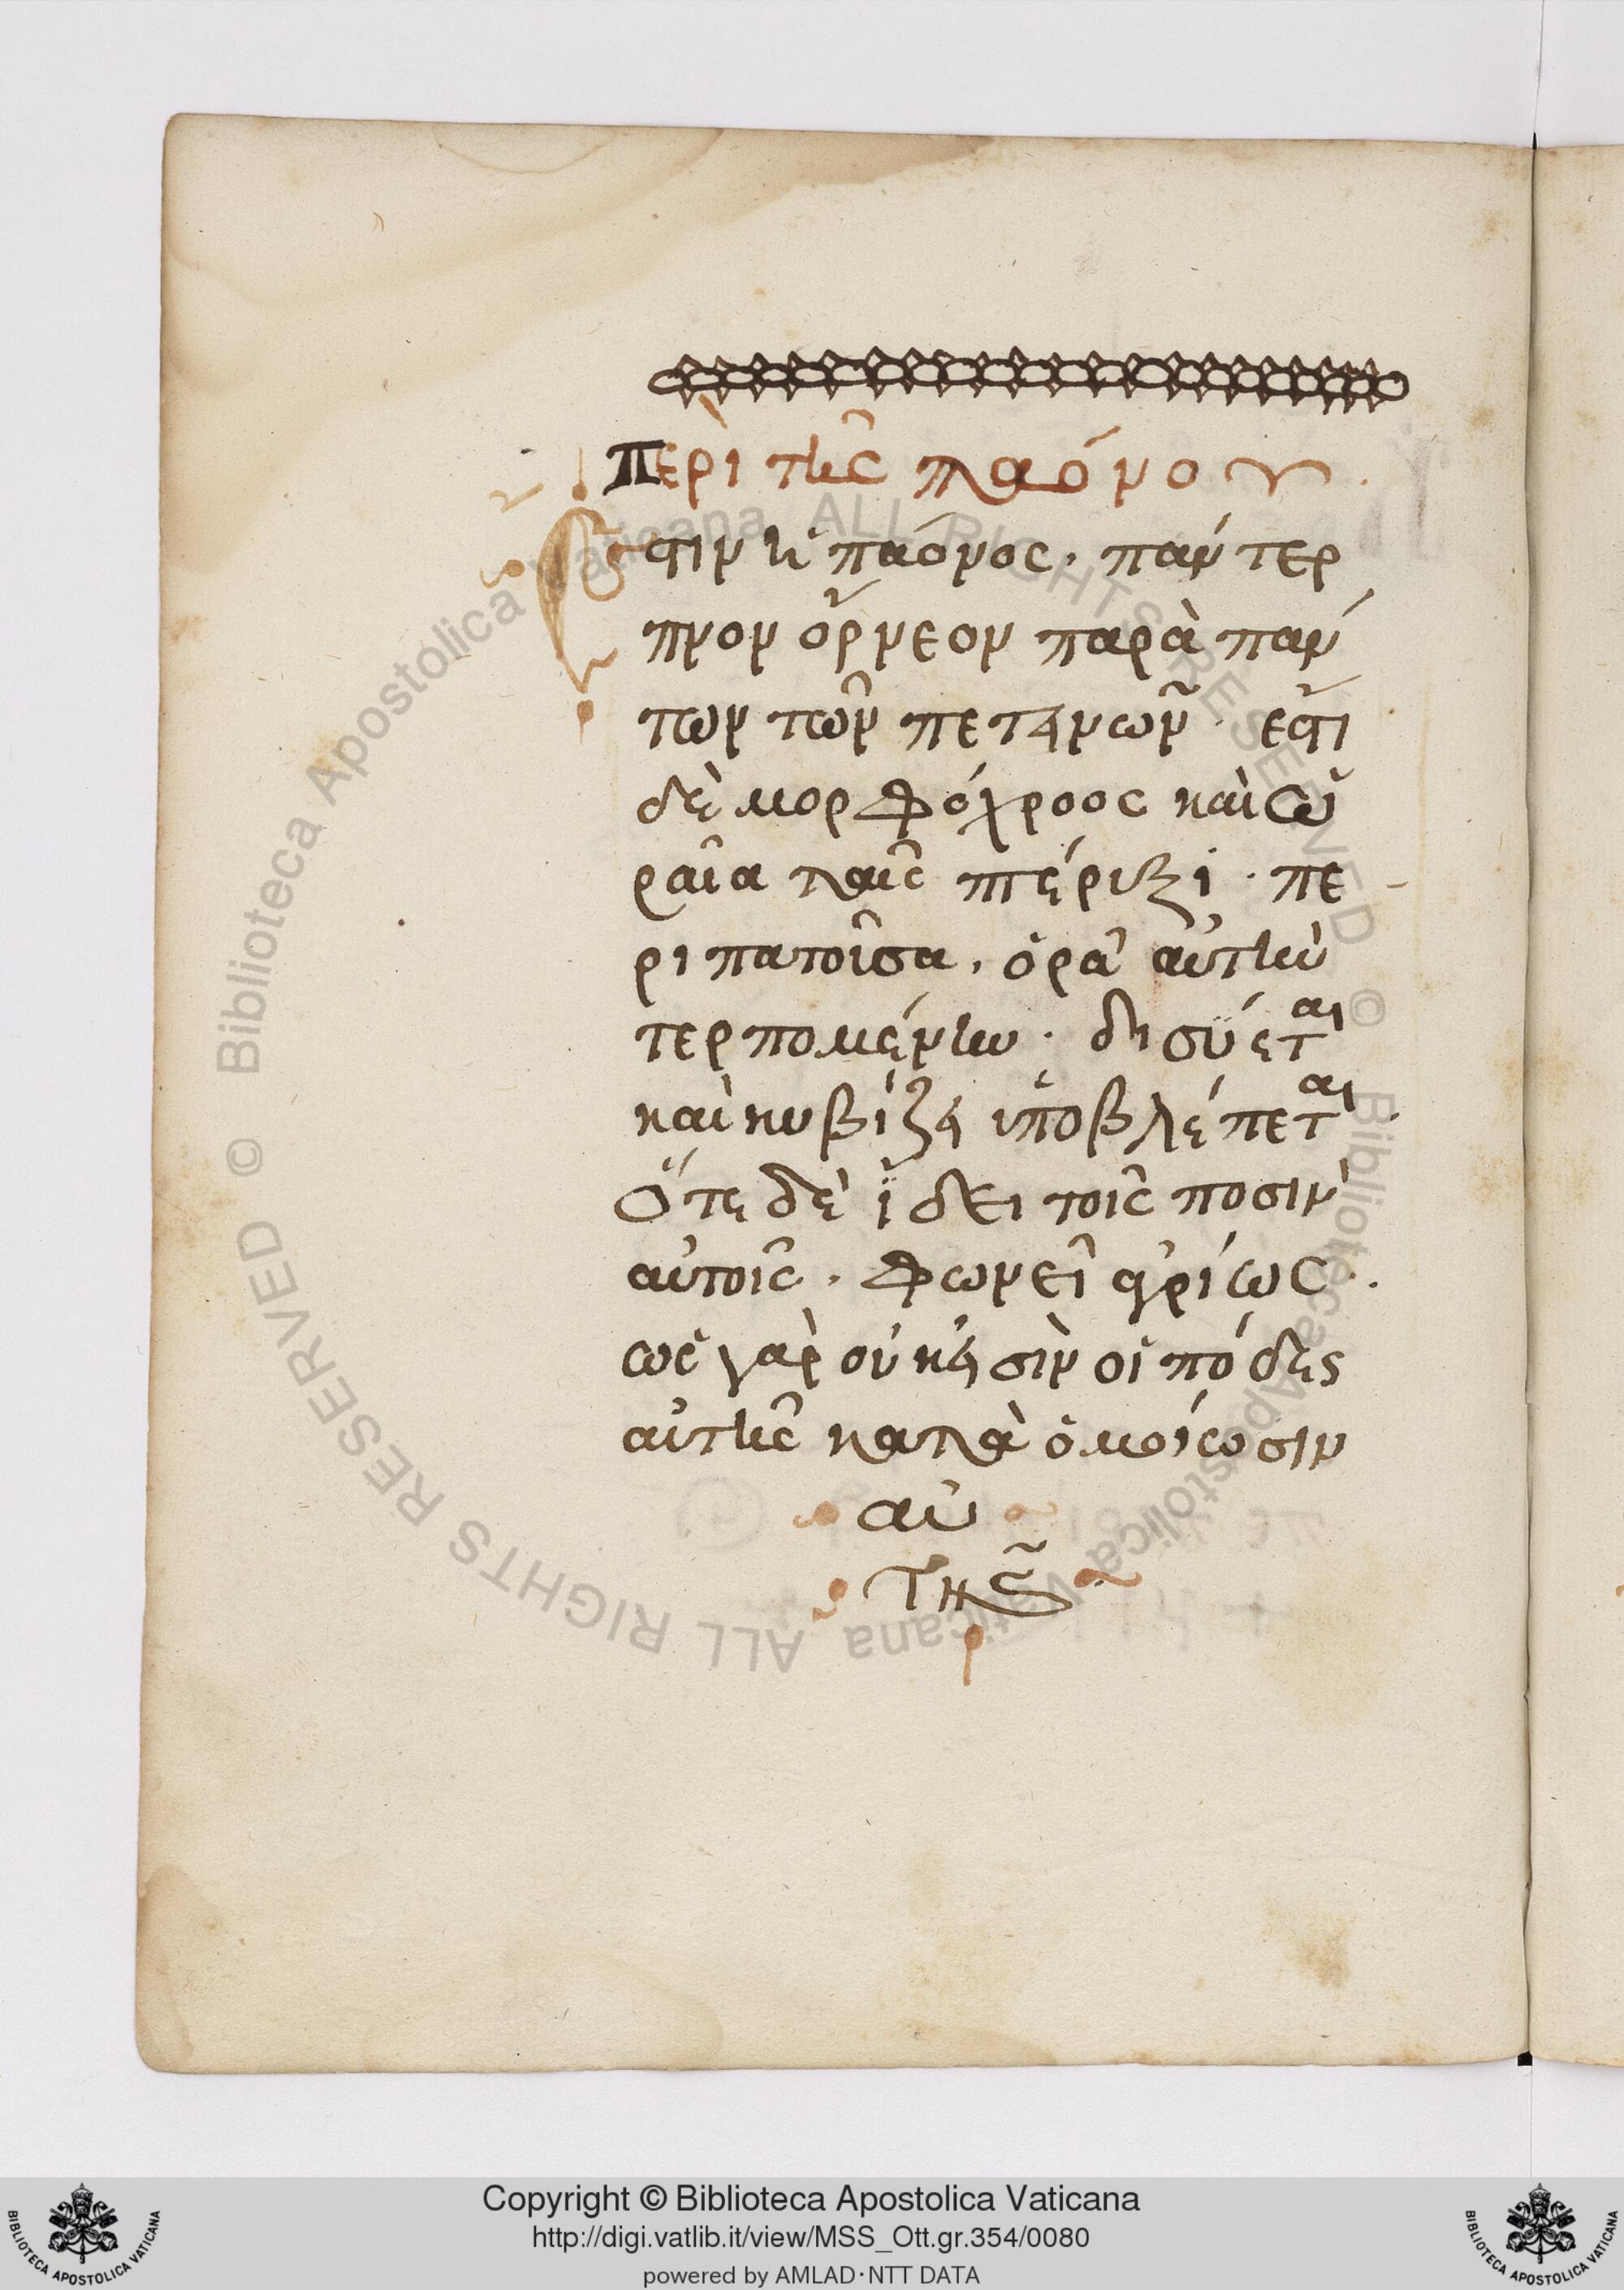 Περὶ τῆς παόνου
Ἔστιν ἡ παόνος. παντερ
πνον ὄρνεον παρὰ πάν
των τῶν πετεινῶν. ἔστι
δὲ μορφόχροος καὶ ὡ
ραῖα ταῖς πτέριξι. πε
ριπατοῦσα. ὁρᾷ αὐτὴν
τερπομένην. δησύεται
καὶ κυβίζει ὑποβλέπεται.
Ὅτε δὲ ἴδει τοῖς ποσὶν
αὐτοῖς. φωνεῖ ἀγρίως.
ὡς γὰρ οὐκ εἰσὶν οἱ πόδες
αὐτῆς κατὰ ὁμοίωσιν
αὐ
τῆς
Copyright © Biblioteca Apostolica Vaticana
http://digi.vatlib.it/view/MSS_Ott.gr.354/0080
powered by AMLAD·NTT DATA
BIBLIOTECA APOSTOLICA VATICANA
BIBLIOTECA APOSTOLICA VATICANA
© Biblioteca Apostolica Vaticana ALL RIGHTS RESERVED © Biblioteca Apostolica Vaticana ALL RIGHTS RESERVED